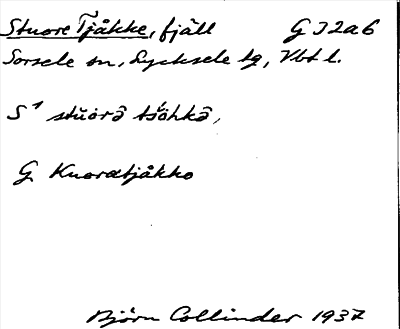 Stuore Tjåkke, fjäll G32a6
Sorsele sn, Lycksele tg, Vbt l.
S¹ stŭorâ tšåhkâ,
G Kuoratjåkko
Björn Collinder 1937